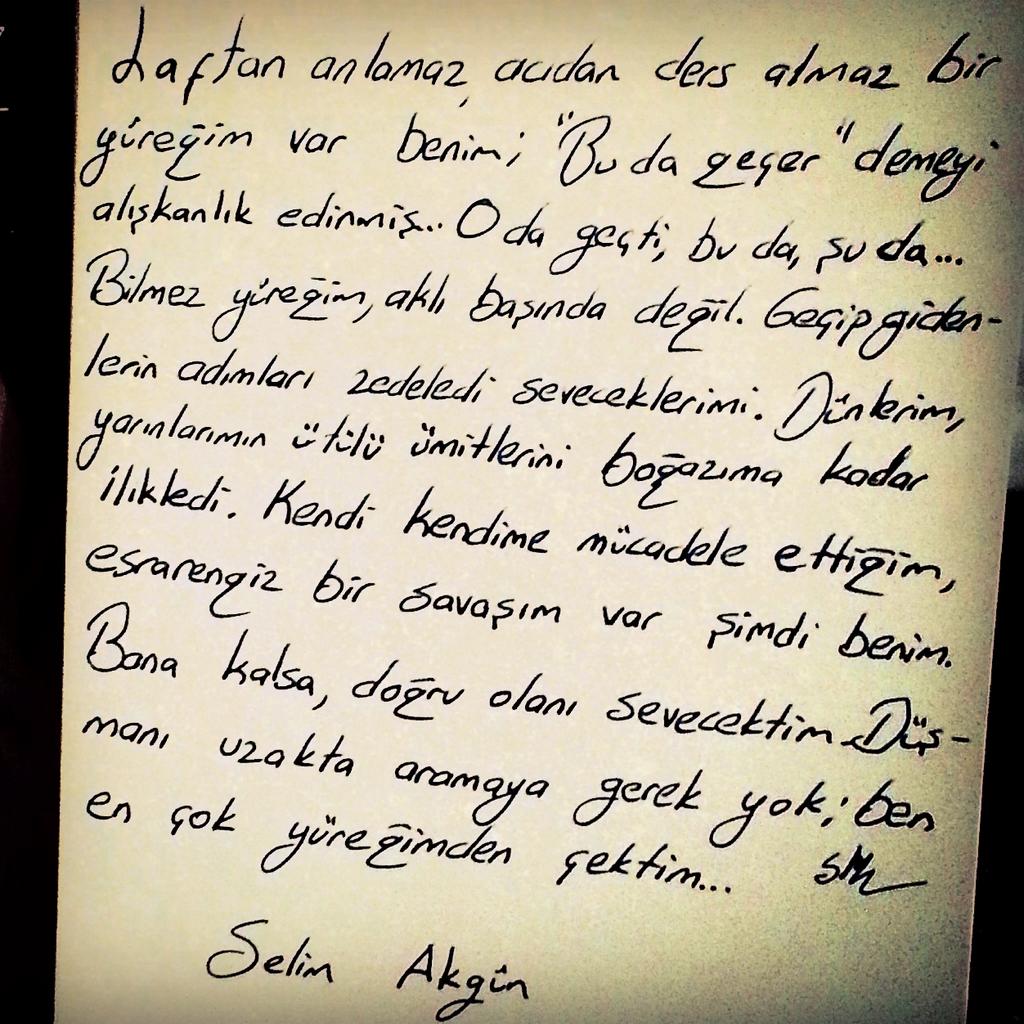 Laftan anlamaz, acıdan ders almaz bir
yüreğim var benim; "Bu da geçer" demeyi
alışkanlık edinmiş.. O da geçti, bu da, şu da...
Bilmez yüreğim, aklı başında değil. Geçip giden-
lerin adımları zedeledi seveceklerimi. Dünlerim,
yarınlarımın ütülü ümitlerini boğazıma kadar
ilikledi. Kendi kendime mücadele ettiğim,
esrarengiz bir savaşım var şimdi benim.
Bana kalsa, doğru olanı sevecektim. Düş-
manı uzakta aramaya gerek yok; ben
en çok yüreğimden çektim...
Selim Akgün